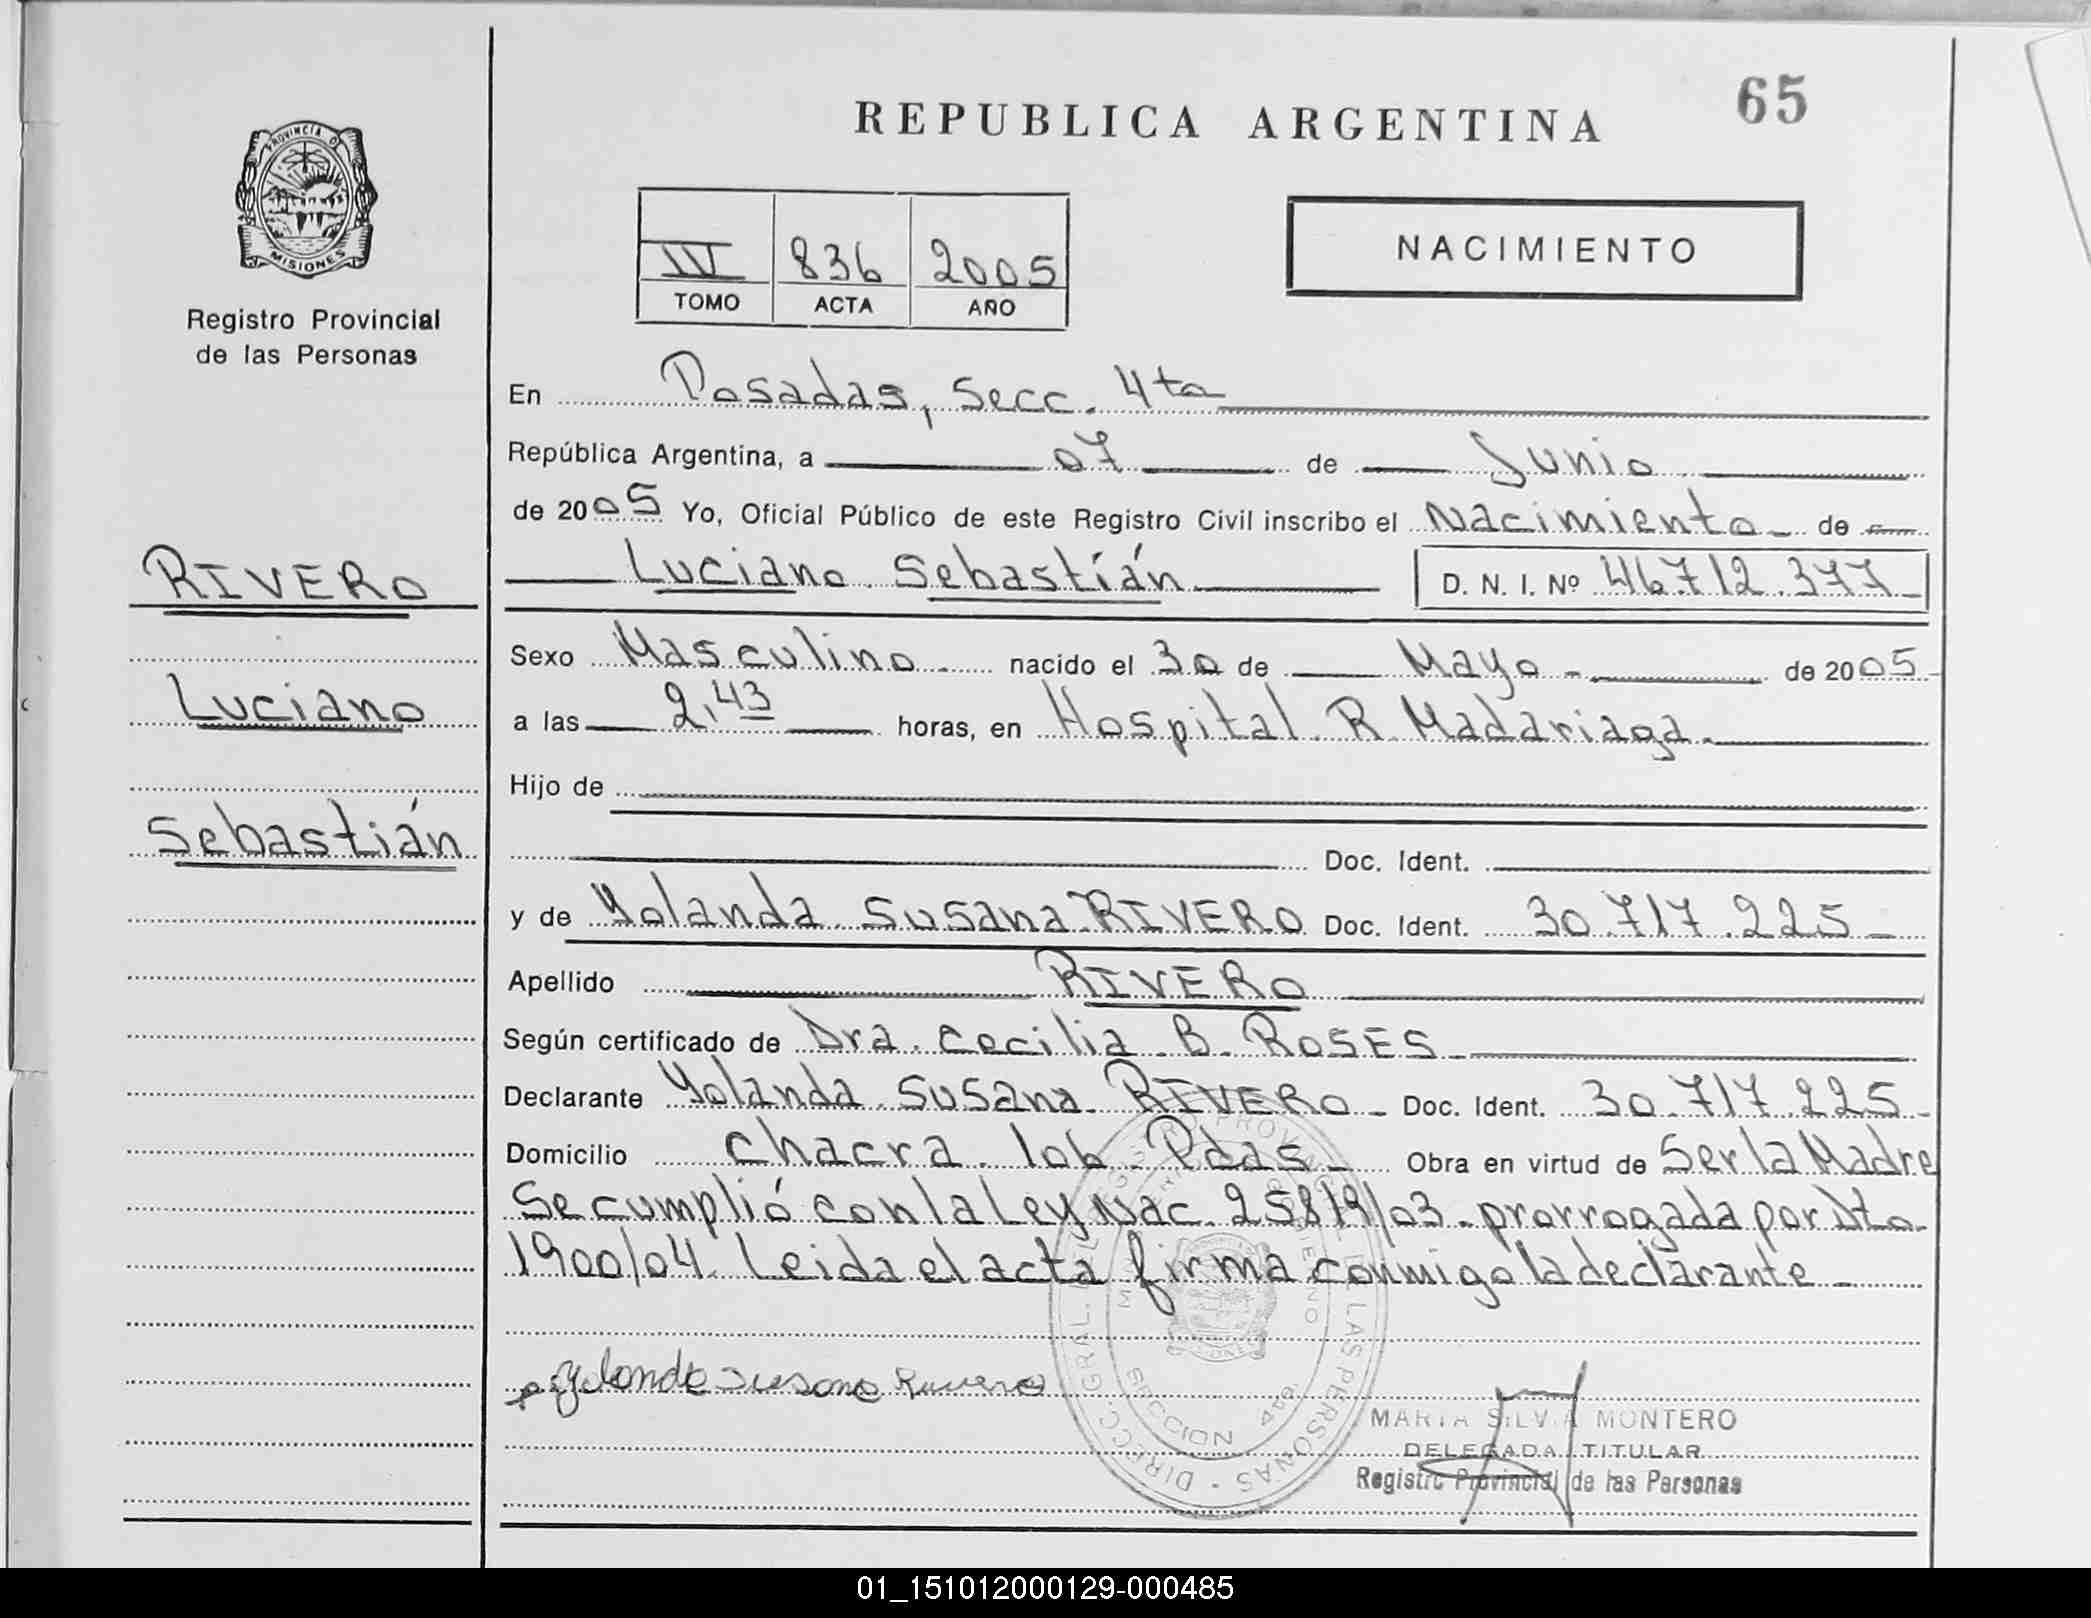 65
REPUBLICA ARGENTINA
PROVINCIA D
MISIONES
Registro Provincial
de las Personas
836 2005
TOMO ACTA AÑO
NACIMIENTO
En Posadas, Secc. 4ta
República Argentina, a 07 de Junio
de 2005 Yo, Oficial Público de este Registro Civil inscribo el Nacimiento de
Luciano Sebastián D. N. I. Nº 46.712.377
RIVERO
Luciano
Sebastián
Sexo Masculino nacido el 30 de Mayo de 2005
a las 2,43 horas, en Hospital R. Madariaga.
Hijo de
Doc. Ident.
y de Yolanda Susana RIVERO Doc. Ident. 30.717.225
Apellido RIVERO
Según certificado de Dra. Cecilia B. ROSES
Declarante Yolanda Susana RIVERO Doc. Ident. 30.717.225
Domicilio Chacra 106 Pdas Obra en virtud de Ser la Madre
Se cumplió con la Ley Nac. 25819/03 prorrogada por Dto
1900/04. Leida el acta firma conmigo la declarante
Yolanda Susana Rivero
DIRECC. GRAL. DE LAS PERSONAS
SECCION 4ta.
MARTA SILVIA MONTERO
DELEGADA TITULAR
Registro Provincial de las Personas
01_151012000129-000485